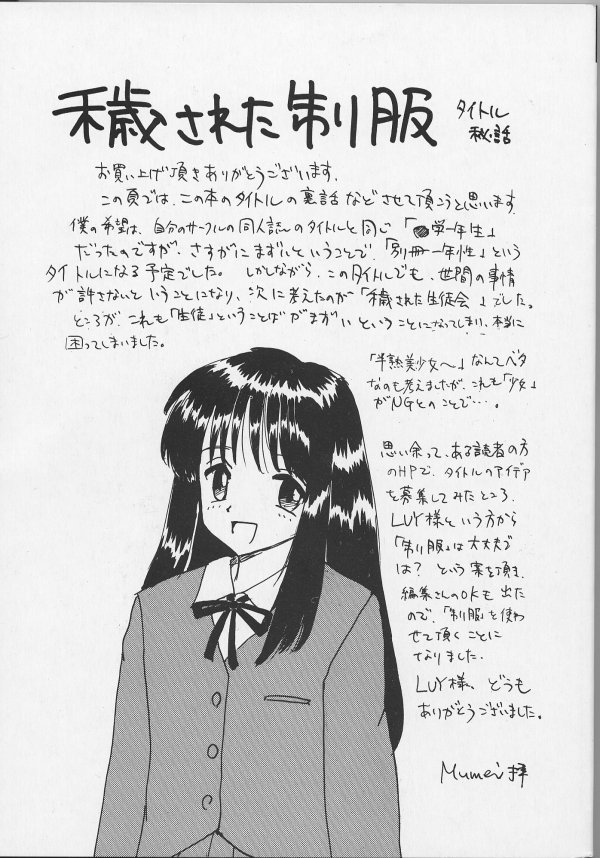 穢された制服
タイトル
秘話
お買い上げ頂きありがとうございます。
この頁では、この本のタイトルの裏話などさせて頂こうと思います
僕の希望は、自分のサークルの同人誌のタイトルと同じ「●学一年生」
だったのですが、さすがにまずいということで、「別冊一年性」という
タイトルになる予定でした。しかしながら、このタイトルでも、世間の事情
が許さないということになり、次に考えたのが「穢された生徒会」でした。
ところが、これも「生徒」ということばがまずいということになってしまい、本当に
困ってしまいました。
「半熟美少女〜」なんてベタ
なのも考えましたが、これも「少女」
がNGとのことで…。
思い余って、ある読者の方
のHPで、タイトルのアイデア
を募集してみたところ、
LUY様という方から
「制服」は大丈夫で
は?という案を頂き、
編集さんのOKも出た
ので、「制服」を使わ
せて頂くことに
なりました。
LUY様、どうも
ありがとうございました。
Mumei 拝